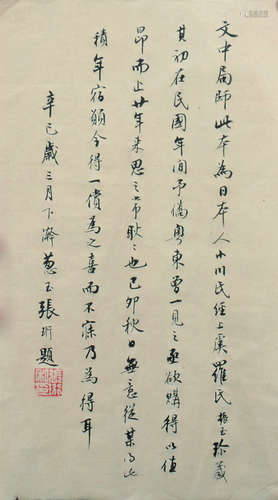 文中局師此本為日本人小川氏經上虞羅氏振玉珍藏
其初在民國年間予僑粵東曾一見之亟欲購得以值
昂而止廿年来思之常耿耿也己卯秋日無意從某得此
積年宿願今得一償為之喜而不寐乃為得耳
辛巳歲三月下澣蔥玉張珩題